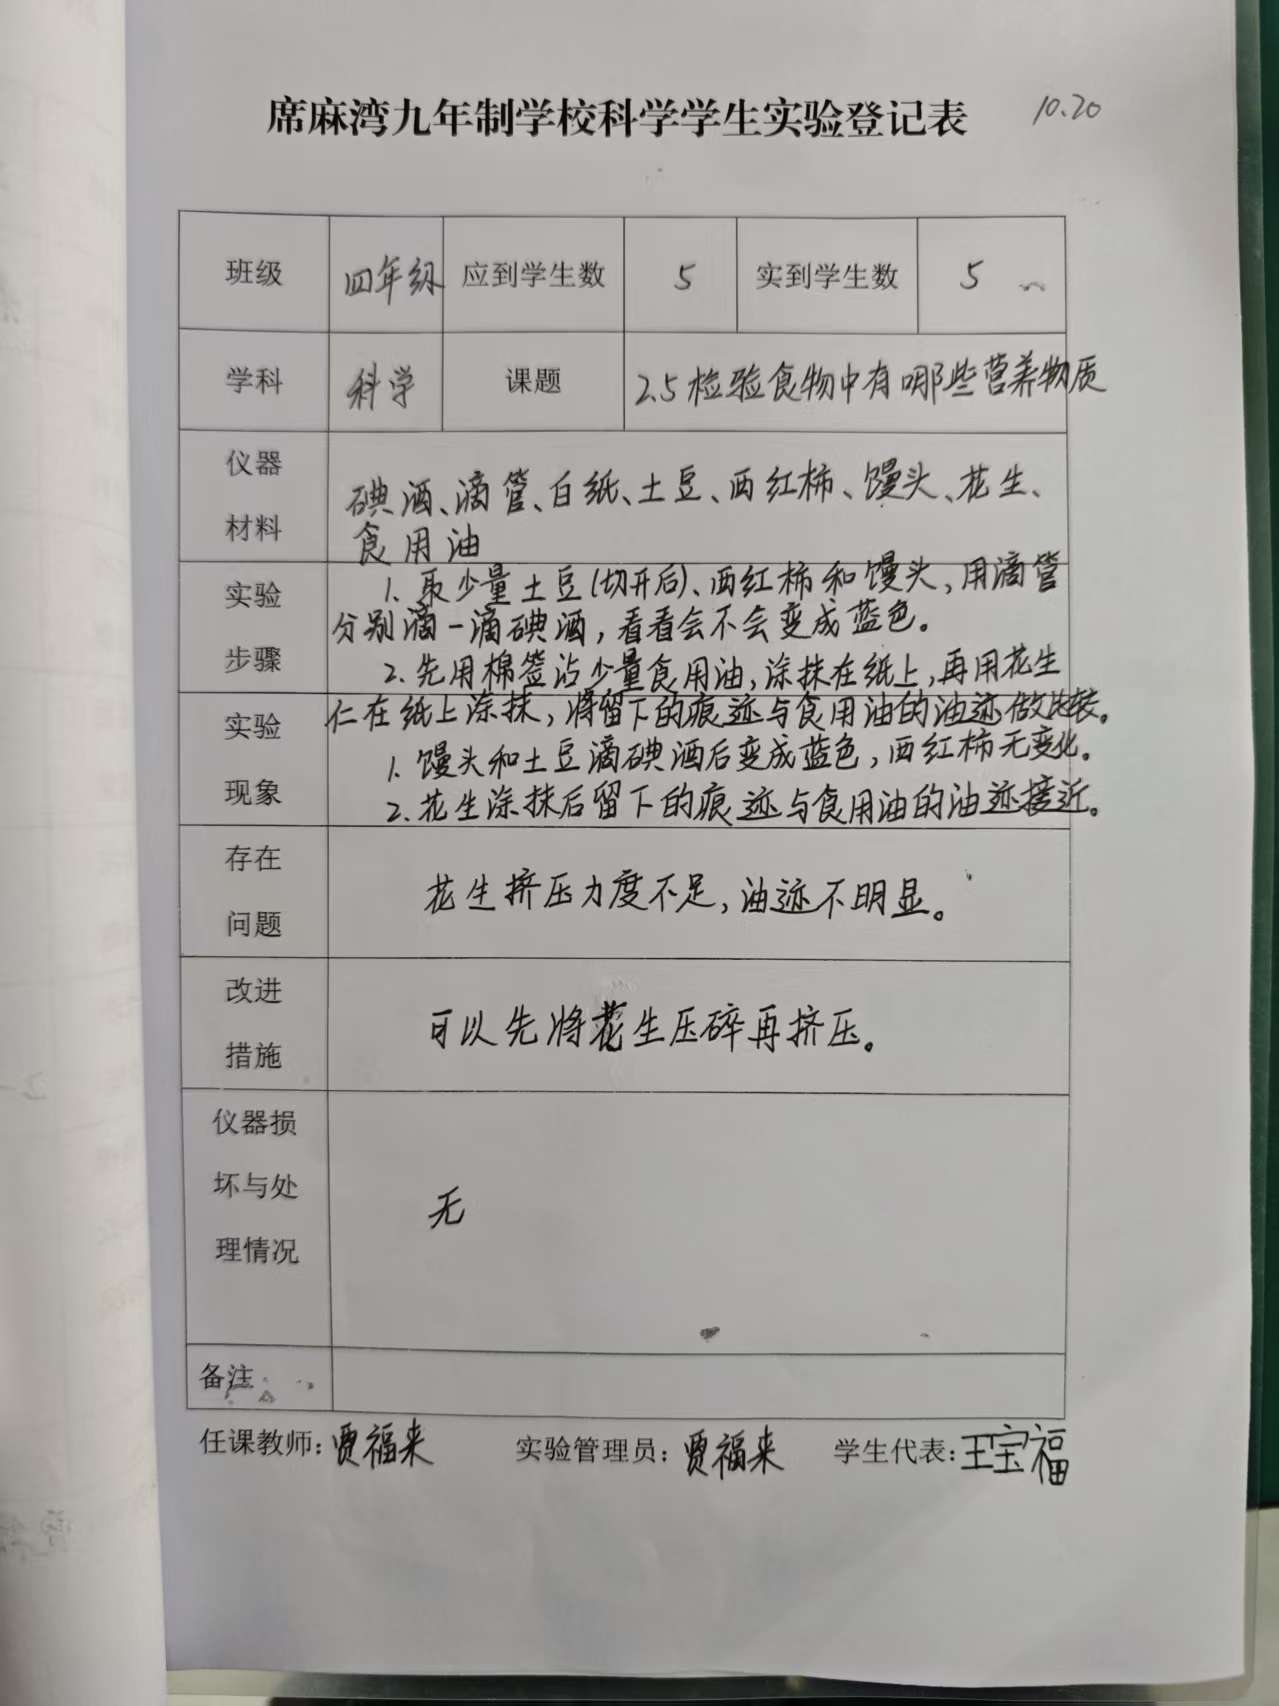 席麻湾九年制学校科学学生实验登记表 10.20
班级 四年级 应到学生数 5 实到学生数 5
学科 科学 课题 2.5检验食物中有哪些营养物质
仪器
材料
碘酒、滴管、白纸、土豆、西红柿、馒头、花生、
食用油
实验
步骤
1. 取少量土豆(切开后)、西红柿和馒头,用滴管
分别滴一滴碘酒,看看会不会变成蓝色。
2. 先用棉签沾少量食用油,涂抹在纸上,再用花生
仁在纸上涂抹,将留下的痕迹与食用油的油迹做比较。
实验
现象
1. 馒头和土豆滴碘酒后变成蓝色,西红柿无变化。
2. 花生涂抹后留下的痕迹与食用油的油迹接近。
存在
问题
花生挤压力度不足,油迹不明显。
改进
措施
可以先将花生压碎再挤压。
仪器损
坏与处
理情况
无
备注
任课教师:贾福来 实验管理员:贾福来 学生代表:王宝福